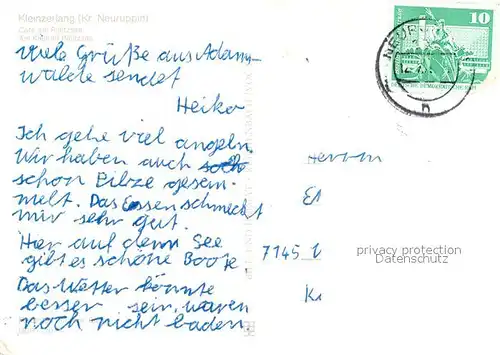 Kleinzerlang (Kr. Neuruppin)
Viele Grüße aus Adams-
walde sendet
Heiko
Ich gehe viel angeln.
Wir haben auch
schon Pilze gesam-
melt. Das Essen schmeckt
mir sehr gut.
Hier auf dem See
gibt es schöne Boote.
Das Wetter könnte
besser sein, waren
noch nicht baden
10
Herrn
7145
privacy protection
Datenschutz